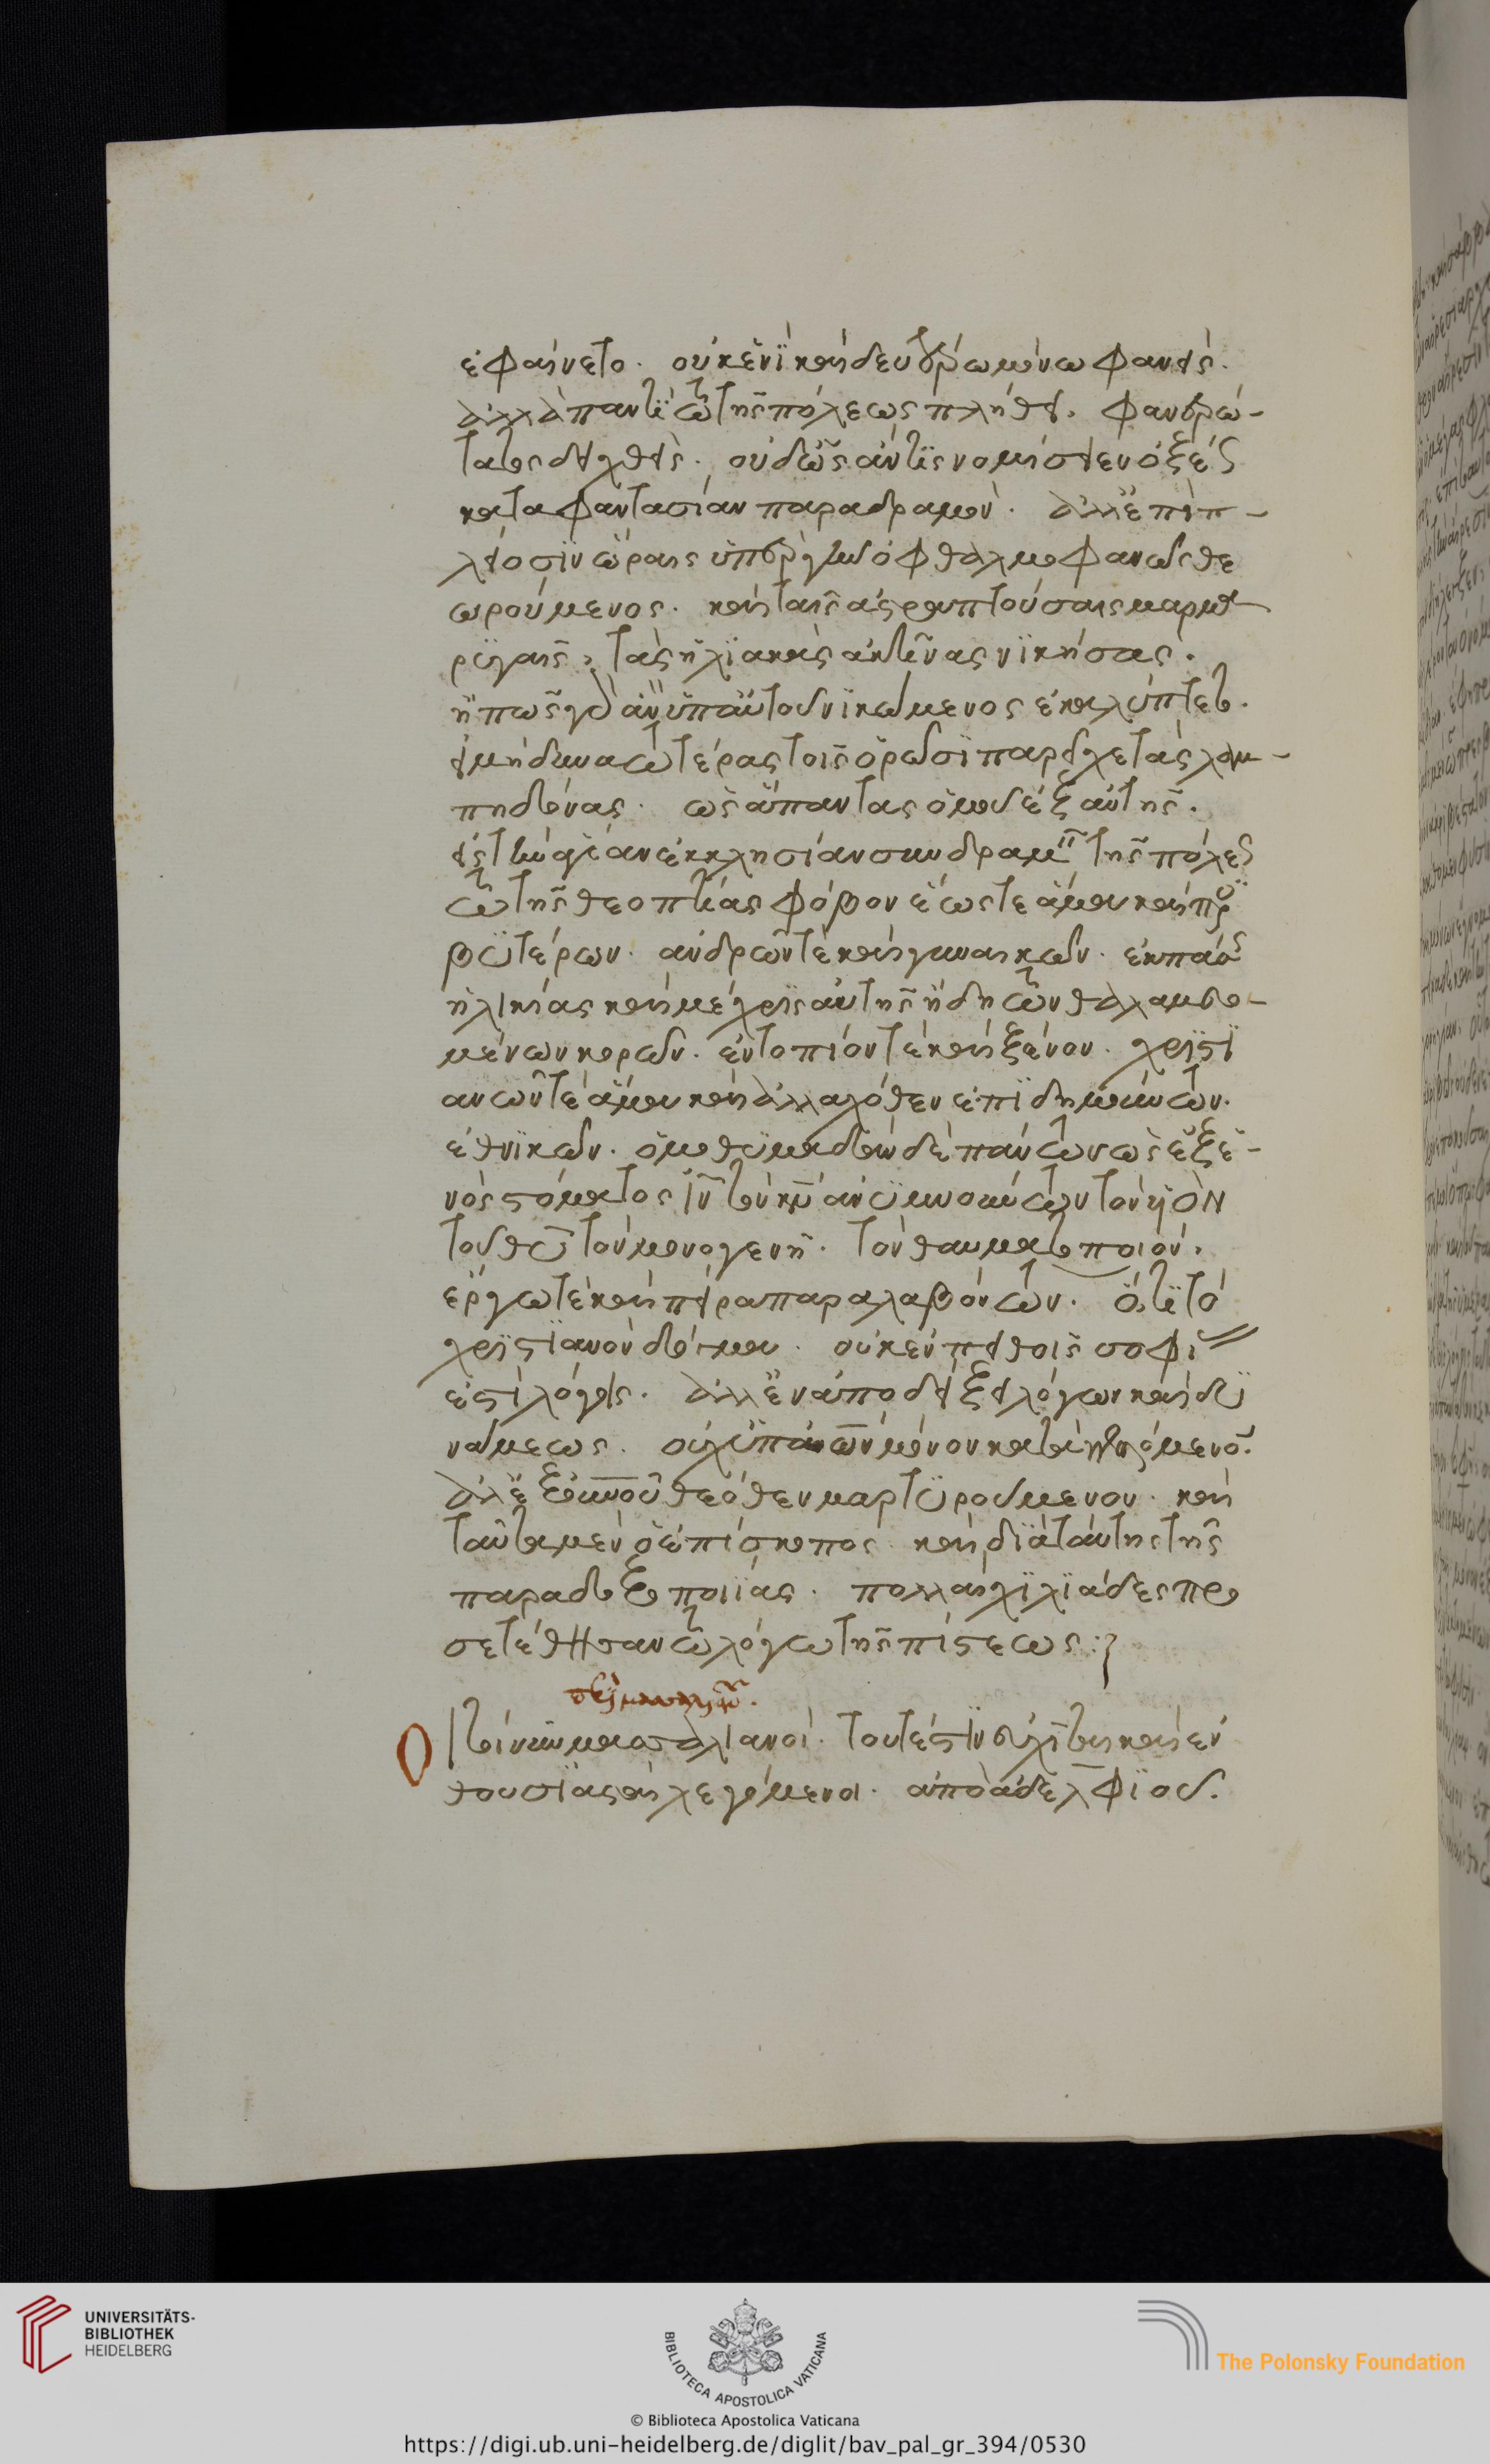 ἐφαίνετο. οὐκ ἑνὶ καὶ δευτέρω μόνω φανεὶς.
ἀλλὰ παντὶ τῶ τῆς πόλεως πλήθει. φανερώ-
τατος δειχθεὶς. οὐδ' ὡς ἄν τις νομίσειεν ὀξέως
κατα φαντασίαν παραδραμὼν. ἀλλ' ἐπὶ π-
λείοσιν ὥραις ὑπὲρ γῆν ὀφθαλμοφανῶς θε
ωρούμενος. καὶ ταῖς ἀστραπτούσαις μαρμα
ρυγαῖς, τὰς ἡλιακὰς ἀκτῖνας νικήσας.
ἢ πῶς γὰρ ἂν ὑπ' αὐτοῦ νικώμενος ἐκαλύπτετο.
εἰ μὴ δυνατωτέρας τοῖς ὁρῶσι παρεῖχε τὰς λαμ-
πηδόνας. ὡς ἅπαντας ὁμοῦ ἐξαυτῆς.
εἰς τὴν ἁγίαν ἐκκλησίαν συνδραμεῖν τῆς πόλεως
τῶ τῆς θεοπτίας φόβον ἕως τε ἅμα καὶ πρεσ
βυτέρων. ἀνδρῶν τὲ καὶ γυναικῶν. ἐκ πάσης
ἡλικίας καὶ μέχρις αὐτῆς ἤδη τῶν θαλαμευο-
μένων κορῶν. ἐντοπίόν τὲ καὶ ξένον. χριστι
ανῶν τὲ ἅμα καὶ ἀλλαχόθεν ἐπιδημούντων.
ἐθνικῶν. ὁμοθυμαδὸν δὲ πάντων ὡς ἐξ ἑ-
νὸς στόματος ἰν τὸν κν ἀνυμνούντων τὸν υἱὸν
τοῦ θυ τὸν μονογενῆ. τὸν θαυματοποιόν.
ἔργω τὲ καὶ πείρα παραλαβόντων. ὅτι τὸ
χριστιανὸν δόγμα. οὐκ ἐν πειθοῖς σοφί
ἐστι λόγοις. ἀλλ' ἐν ἀποδείξει λόγων καὶ δυ
νάμεως. οὐχ ὑπ' ἀνων μόνον καταγγελόμενον.
ἀλλ' ἐξ οὐνοῦ θεόθεν μαρτυρούμενον. καὶ
ταῦτα μὲν ὁ ἐπίσκοπος. καὶ διὰ ταύτης τῆς
παραδοξοποιίας. πολλαὶ χιλιάδες προ
σετέθησαν τῶ λόγω τῆς πίστεως:
Οἱ τοίνυν μασαλιανοί. τουτέστιν εὐχῖται καὶ ἐν
θουσιασταὶ λεγόμενοι. ἀπὸ ἀδελφίου.
UNIVERSITÄTS-
BIBLIOTHEK
HEIDELBERG
BIBLIOTECA APOSTOLICA VATICANA
The Polonsky Foundation
© Biblioteca Apostolica Vaticana
https://digi.ub.uni-heidelberg.de/diglit/bav_pal_gr_394/0530